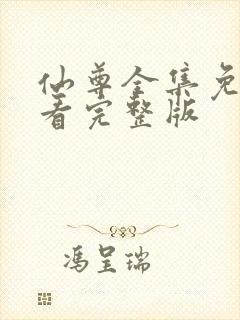 仙尊全集免
看完整版
冯呈瑞